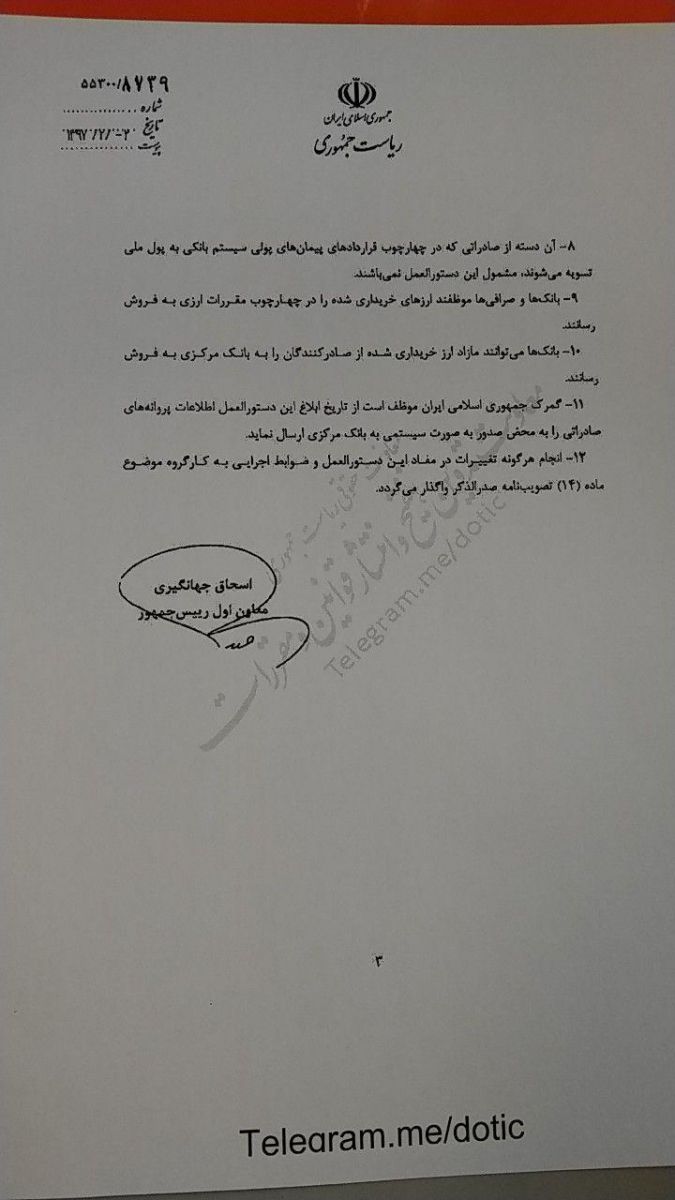 ۵۵۳۰۰/۸۷۳۹
شماره
تاریخ ۱۳۹۷/۲/۰۳
پیوست
جمهوری اسلامی ایران
ریاست جمهوری
۸- آن دسته از صادراتی که در چهارچوب قراردادهای پیمان‌های پولی سیستم بانکی به پول ملی
تسویه می‌شوند، مشمول این دستورالعمل نمی‌باشند.
۹- بانک‌ها و صرافی‌ها موظفند ارزهای خریداری شده را در چهارچوب مقررات ارزی به فروش
رسانند.
۱۰- بانک‌ها می‌توانند مازاد ارز خریداری شده از صادرکنندگان را به بانک مرکزی به فروش
رسانند.
۱۱- گمرک جمهوری اسلامی ایران موظف است از تاریخ ابلاغ این دستورالعمل اطلاعات پروانه‌های
صادراتی را به محض صدور به صورت سیستمی به بانک مرکزی ارسال نماید.
۱۲- انجام هرگونه تغییرات در مفاد این دستورالعمل و ضوابط اجرایی به کارگروه موضوع
ماده (۱۴) تصویب‌نامه صدرالذکر واگذار می‌گردد.
اسحاق جهانگیری
معاون اول رییس‌جمهور
معاونت تدوین، تنقیح و انتشار قوانین و مقررات
معاونت حقوقی ریاست جمهوری
Telegram.me/dotic
۳
Telegram.me/dotic